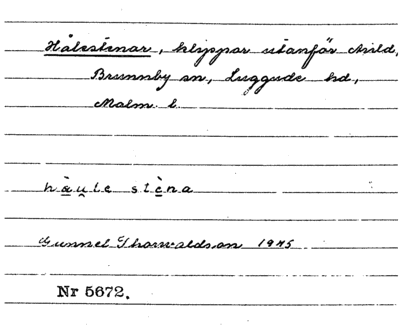 Hålestenar, klippor utanför Arild,
Brunnby sn, Luggude hd,
Malm. l.
hàu̯le stèna
Gunnel Thorwaldson 1945
Nr 5672.